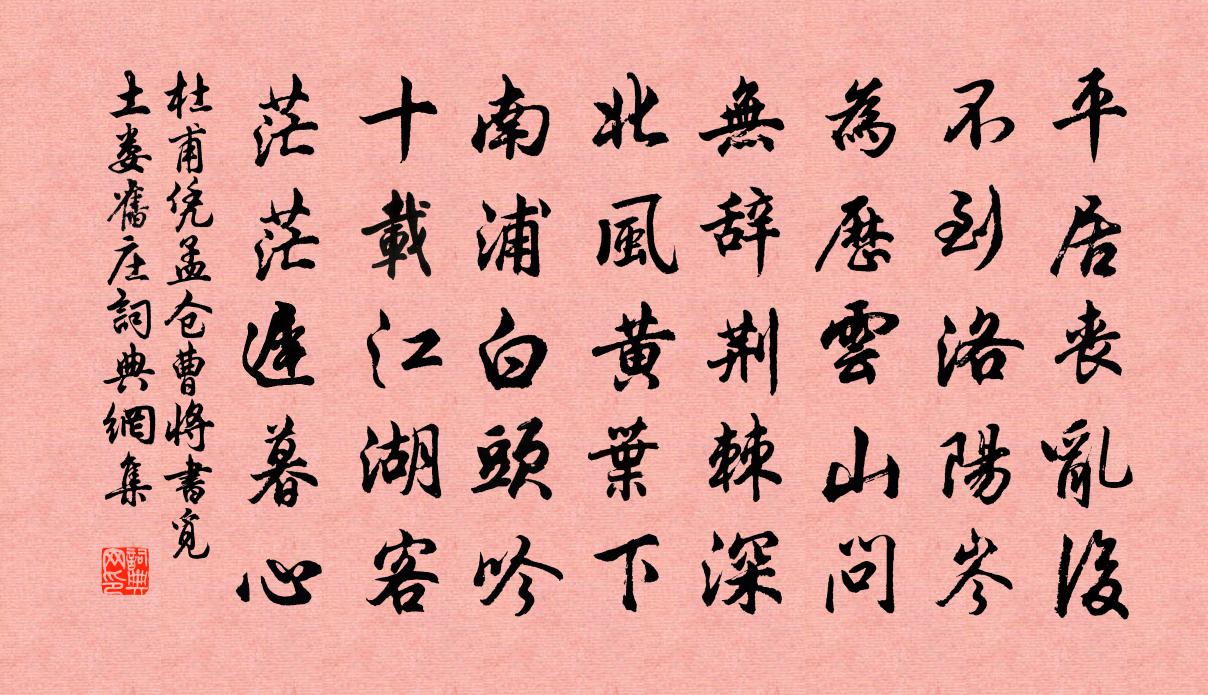 平居喪亂後
不到洛陽岑
為歷雲山問
無辞荆棘深
北風黄葉下
南浦白頭吟
十載江湖客
茫茫遲暮心
杜甫凭孟仓曹將書覓
土娄舊庄詞典網集
詞典网印